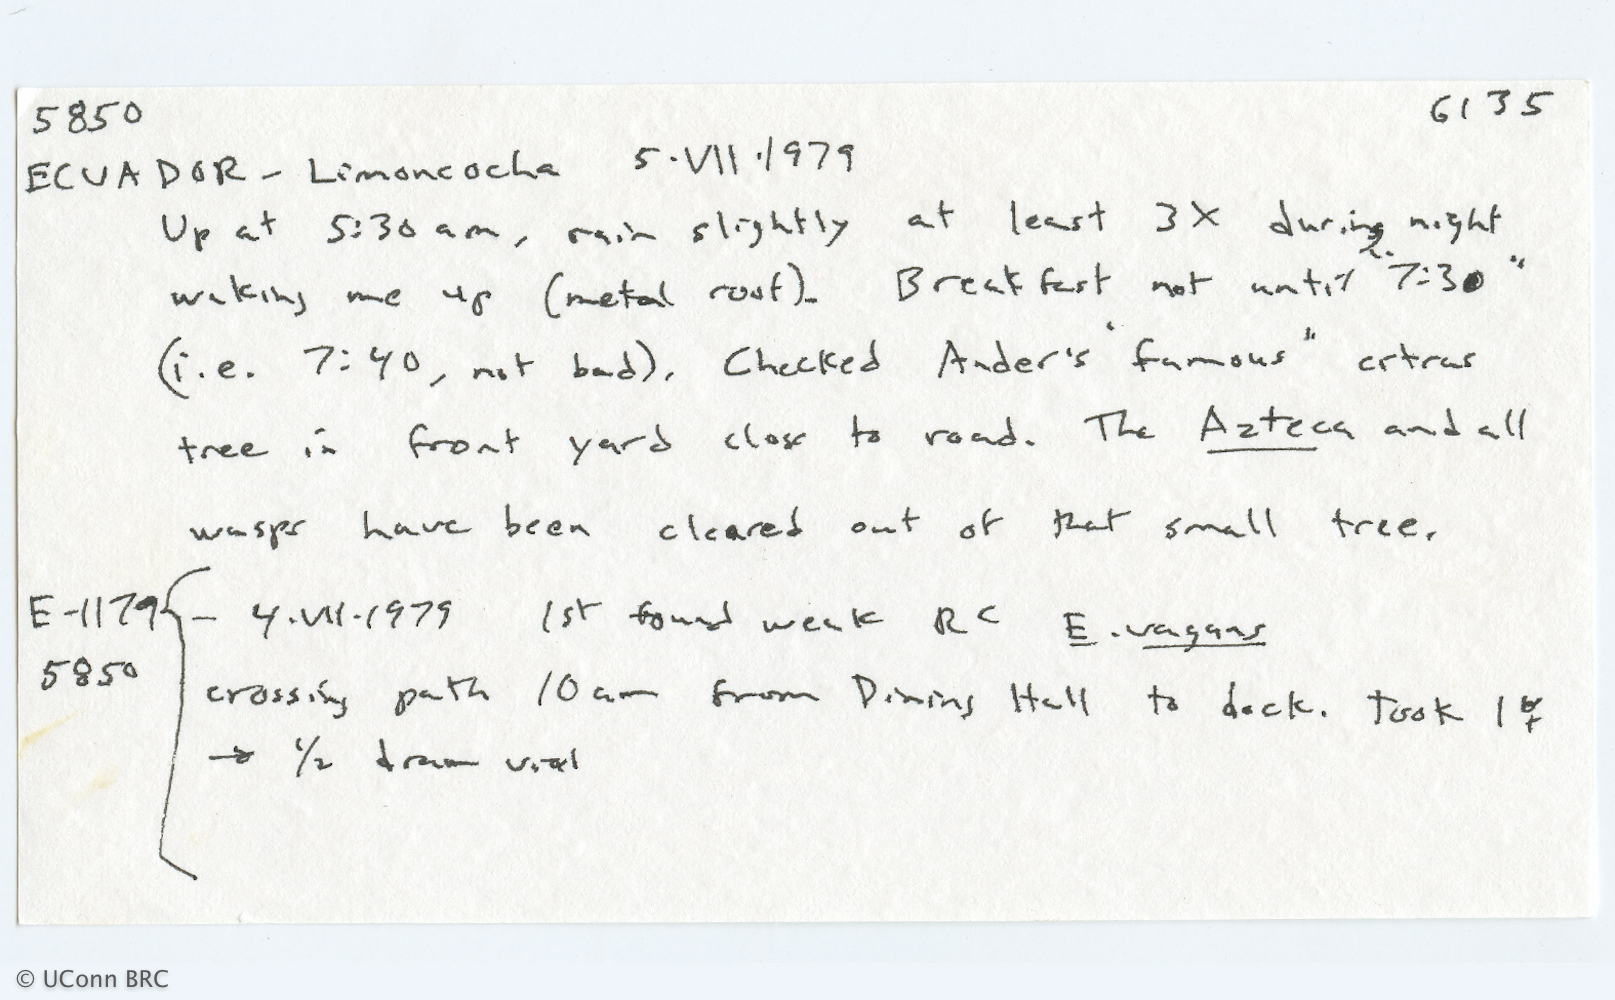 5850
6135
ECUADOR - Limoncocha 5.VII.1979
Up at 5:30 am, rain slightly at least 3X during night
waking me up (metal roof). Breakfast not until "7:30"
(i.e. 7:40, not bad). Checked Ander's "famous"
tree in front yard close to road. The Azteca and all
wasps have been cleared out of that small tree.
E-1179 - 4.VII.1979 1st found weak RC E. vagans
5850
crossing path 10 am from Dining Hall to dock. Took 1
→ 1/2 dram vial
© UConn BRC